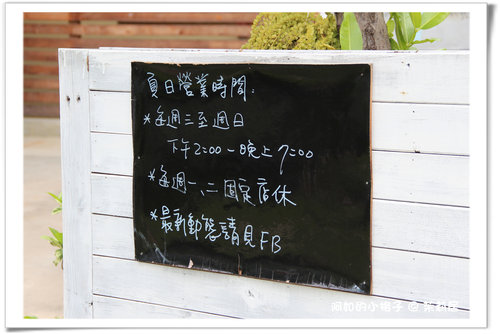 夏日營業時間：
*每週三至週日
下午2:00－晚上7:00
*每週一、二固定店休
*最新動態請見FB